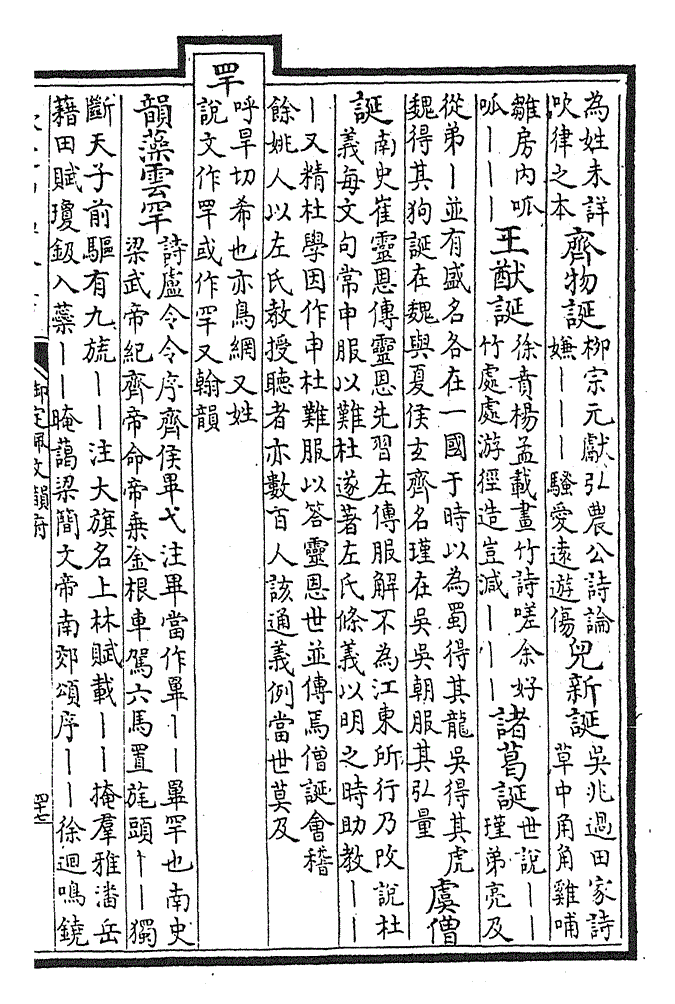 為姓未詳
吹律之本
齊物誕
柳宗元獻弘農公詩論
嫌丨丨丨騷愛遠遊傷
兒新誕
吳兆過田家詩
草中角角雞哺
雛房內呱
呱丨丨丨
王猷誕
徐賁楊孟載畫竹詩嗟余好
竹處處游徑造豈減丨丨丨
諸葛誕
世說丨丨
瑾弟亮及
從弟丨並有盛名各在一國于時以為蜀得其龍吳得其虎
魏得其狗誕在魏與夏侯玄齊名瑾在吳吳朝服其弘量
虞僧
誕
南史崔靈恩傳靈恩先習左傳服解不為江東所行乃改說杜
義每文句常申服以難杜遂著左氏條義以明之時助教丨丨
丨又精杜學因作申杜難服以答靈恩世並傳焉僧誕會稽
餘姚人以左氏教授聽者亦數百人該通義例當世莫及
罕
呼旱切希也亦鳥網又姓
說文作罕或作罕又翰韻
韻藻雲罕
詩盧令令序齊侯畢弋注畢當作畢丨丨畢罕也南史
梁武帝紀齊帝命帝乘金根車駕六馬置旄頭丨丨獨
斷天子前驅有九旒丨丨注大旗名上林賦載丨丨掩羣雅潘岳
藉田賦瓊鈒入蘂丨丨晻藹梁簡文帝南郊頌序丨丨徐迴鳴鐃
御定佩文韻府